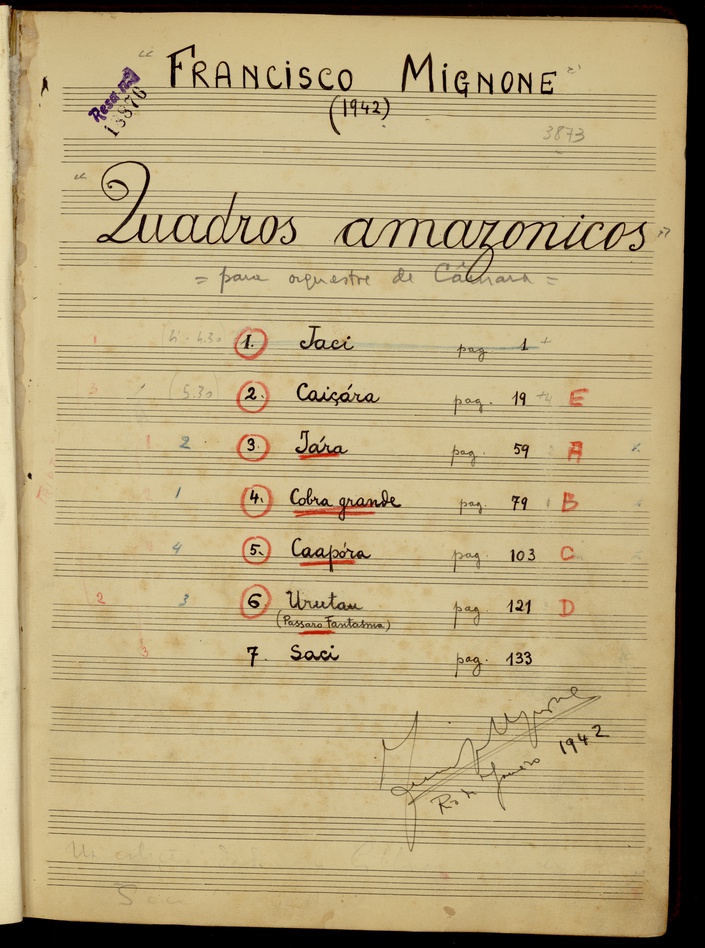 " FRANCISCO MIGNONE "
(1942)
3873
" Quadros amazonicos "
= para orquestra de Câmara =
1 1. Jaci pag. 1 +
3 (5.30) 2. Caiçára pag. 19 E
1 2 3. Jára pag. 59 A
1 4. Cobra grande pag. 79 B
4 5. Caapóra pag. 103 C
2 3 6 Urutau pag. 121 D
(Passaro Fantasma)
3 7. Saci pag. 133
Mignone
Rio de Janeiro 1942